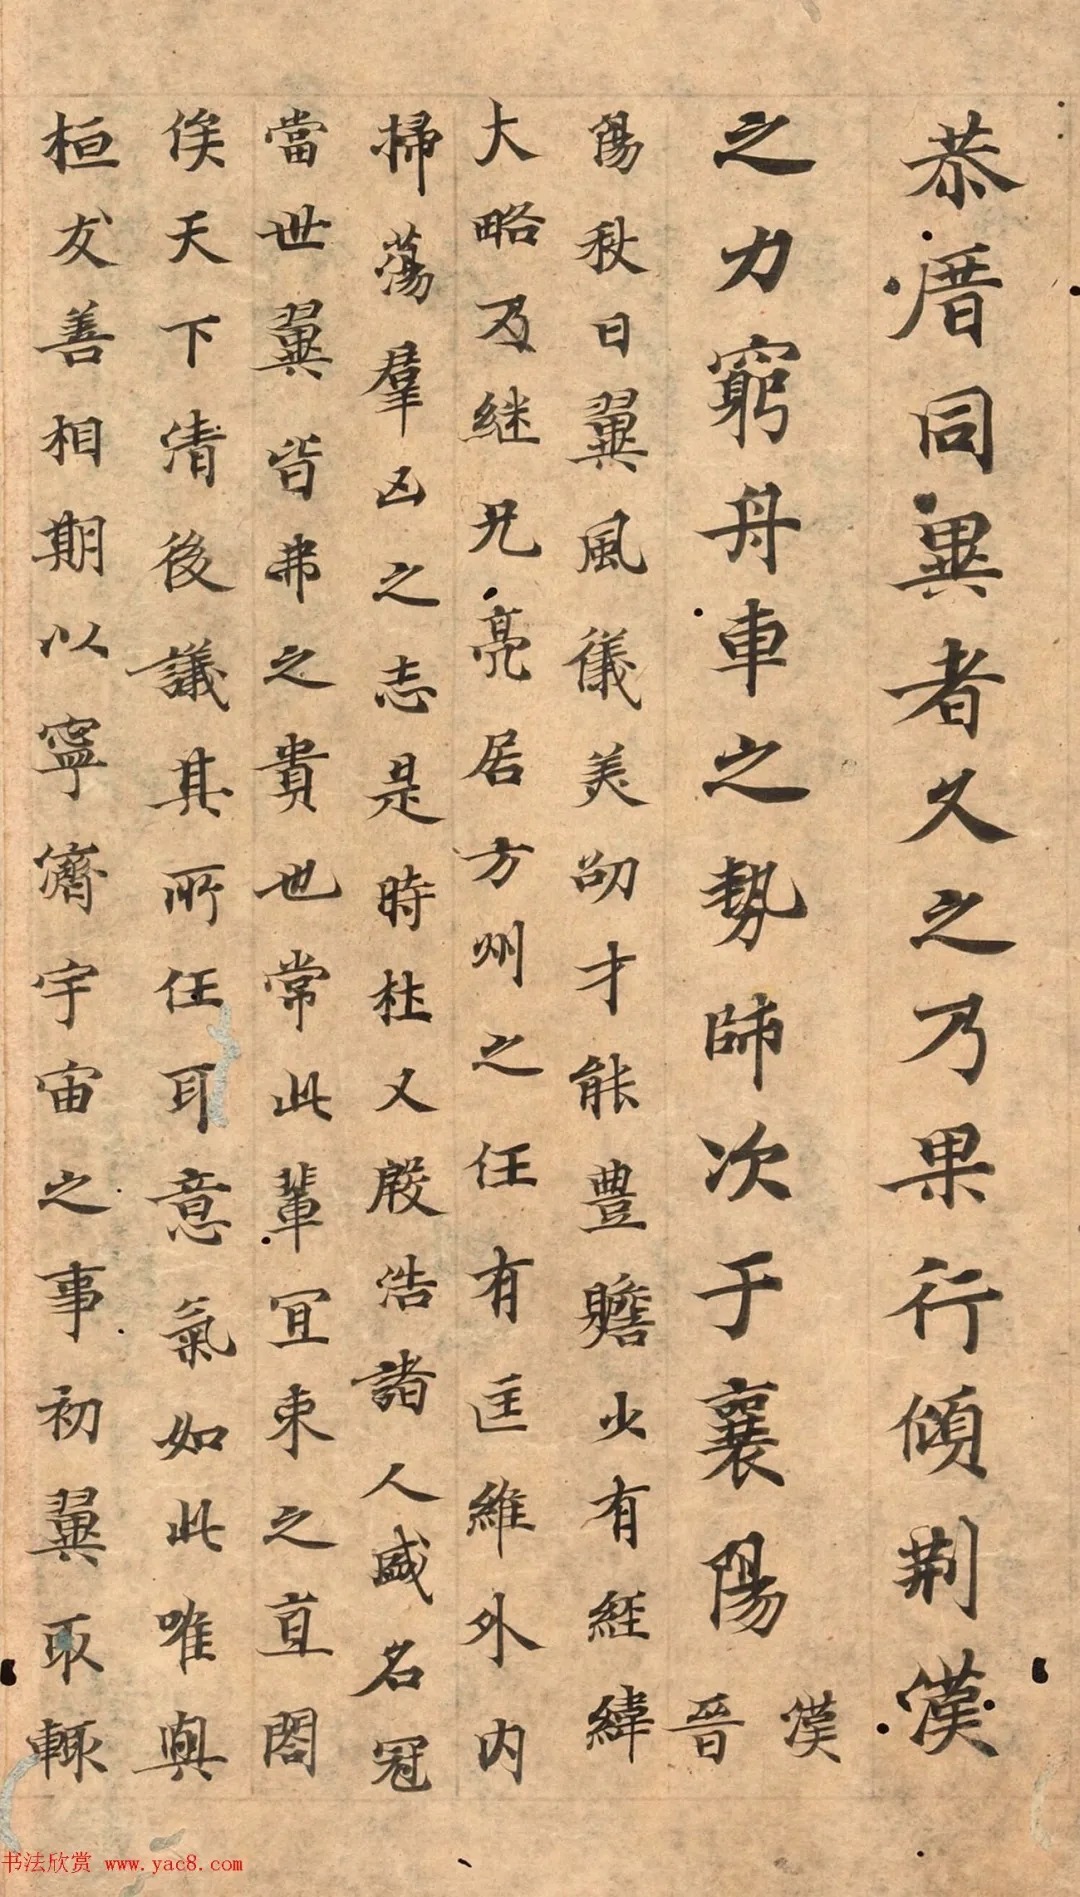 恭厝同異者久之乃果行傾荆漢
之力窮舟車之勢師次于襄陽漢晉
陽秋曰翼風儀美劭才能豊贍少有經緯
大略及継兄亮居方州之任有匡維外内
掃蕩羣凶之志是時杜乂殷浩諸人盛名冠
當世翼皆弗之貴也常此輩宜束之直閣
俟天下清後議其所任耳意氣如此唯與
桓友善相期以寧濟宇宙之事初翼取輙
书法欣赏 www.yac8.com